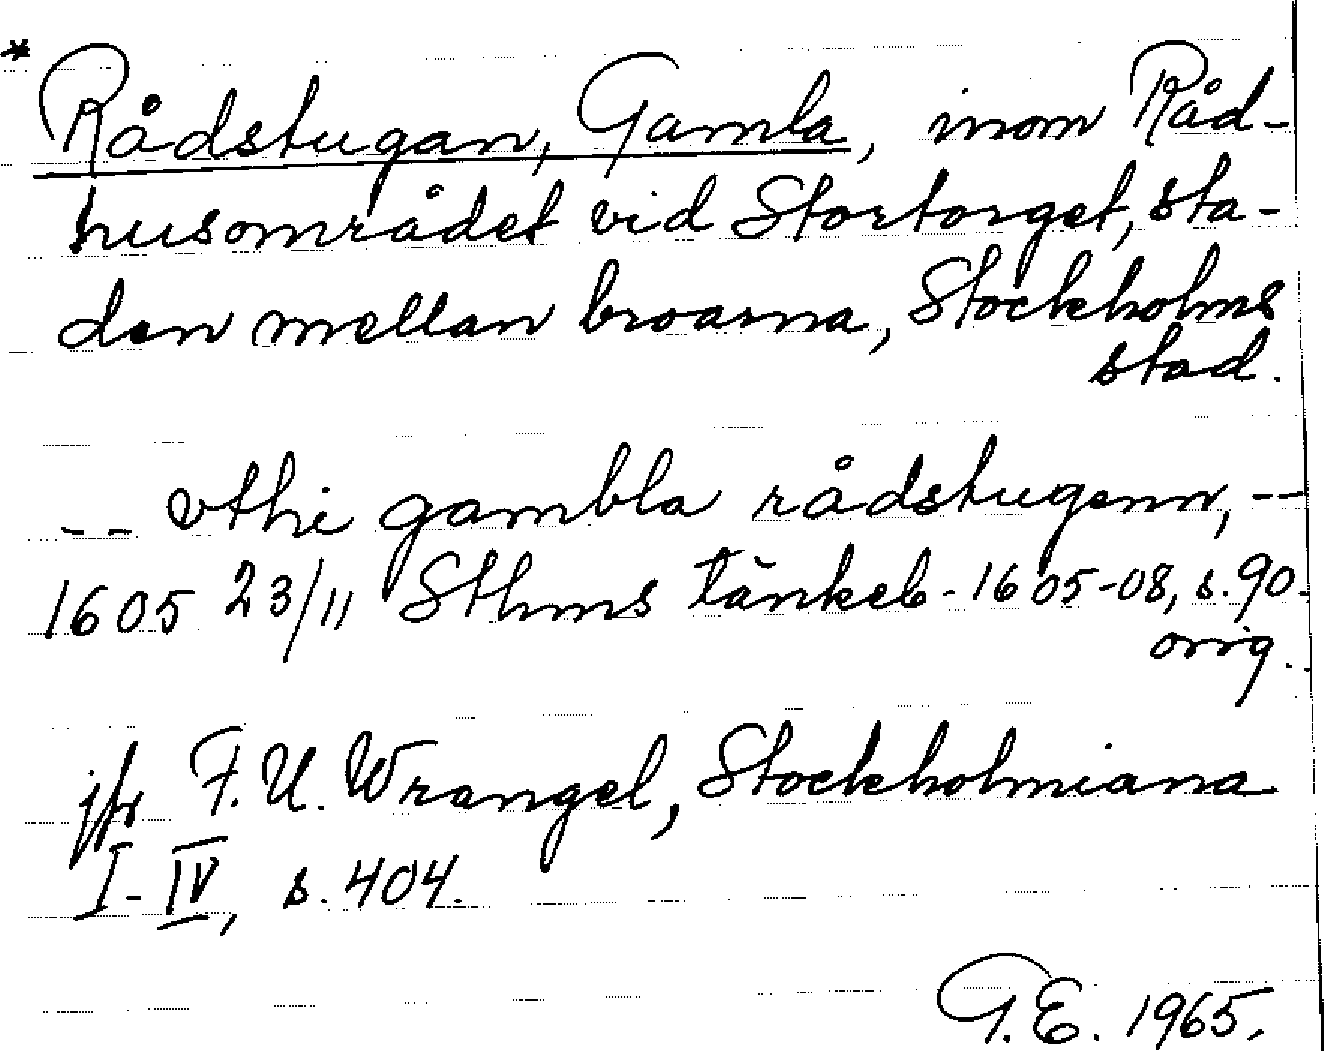 * Rådstugan, Gamla, inom Råd-
husområdet vid Stortorget, sta-
den mellan broarna, Stockholms
stad.
-- vthi gambla rådstugenn, --
1605 23/11 Sthms tänkeb. 1605-08, s. 90.
orig.
jfr F. U. Wrangel, Stockholmiana
I-IV, s. 404.
G. E. 1965.